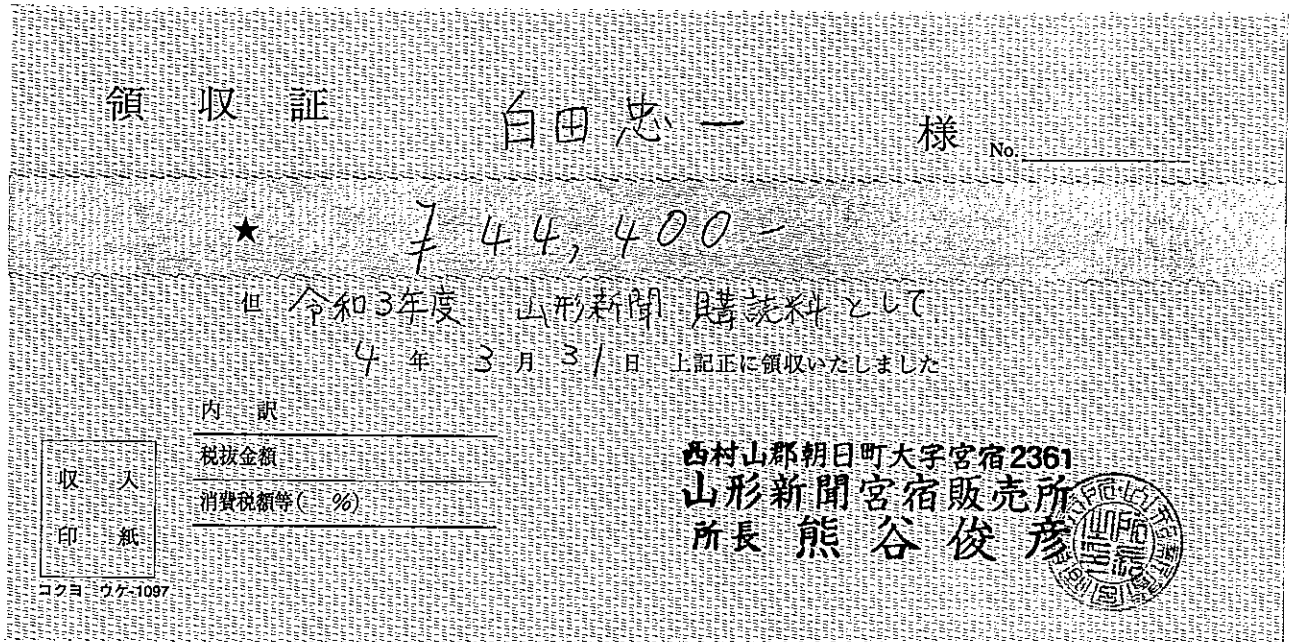 領収証 白田忠一 様 No.
★ ¥44,400-
但 令和3年度 山形新聞 購読料として
4年 3月 31日 上記正に領収いたしました
内訳
税抜金額
消費税額等( %)
収入
印紙
コクヨ ウケ-1097
西村山郡朝日町大字宮宿2361
山形新聞宮宿販売所
所長 熊谷俊彦